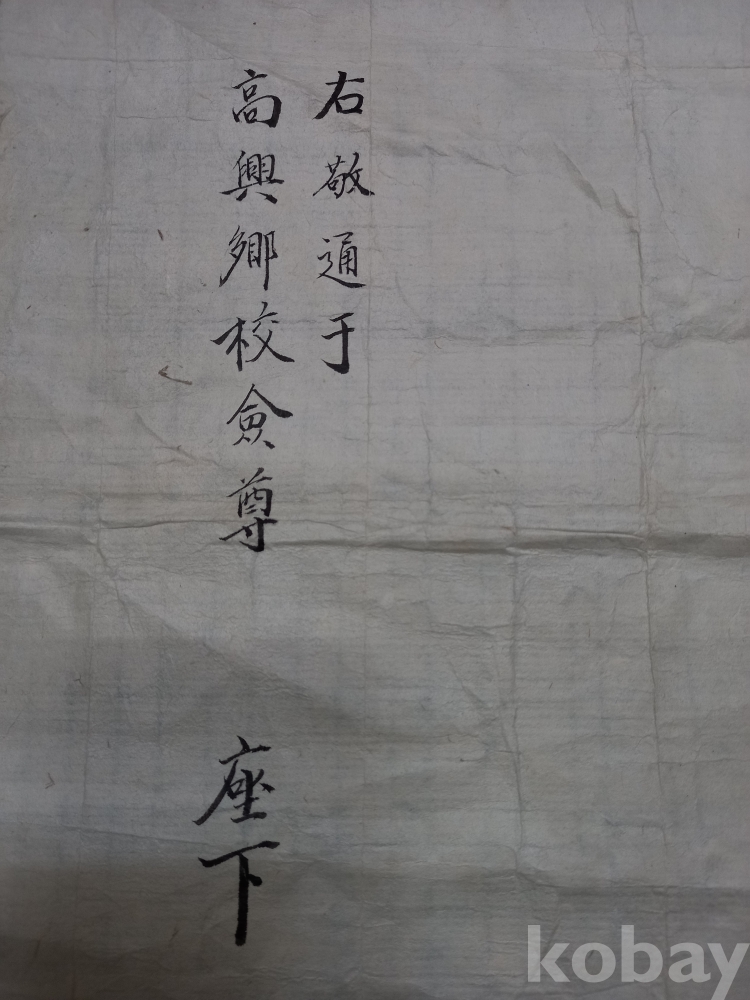 右敬通于
高興鄉校僉尊
座下
kobay